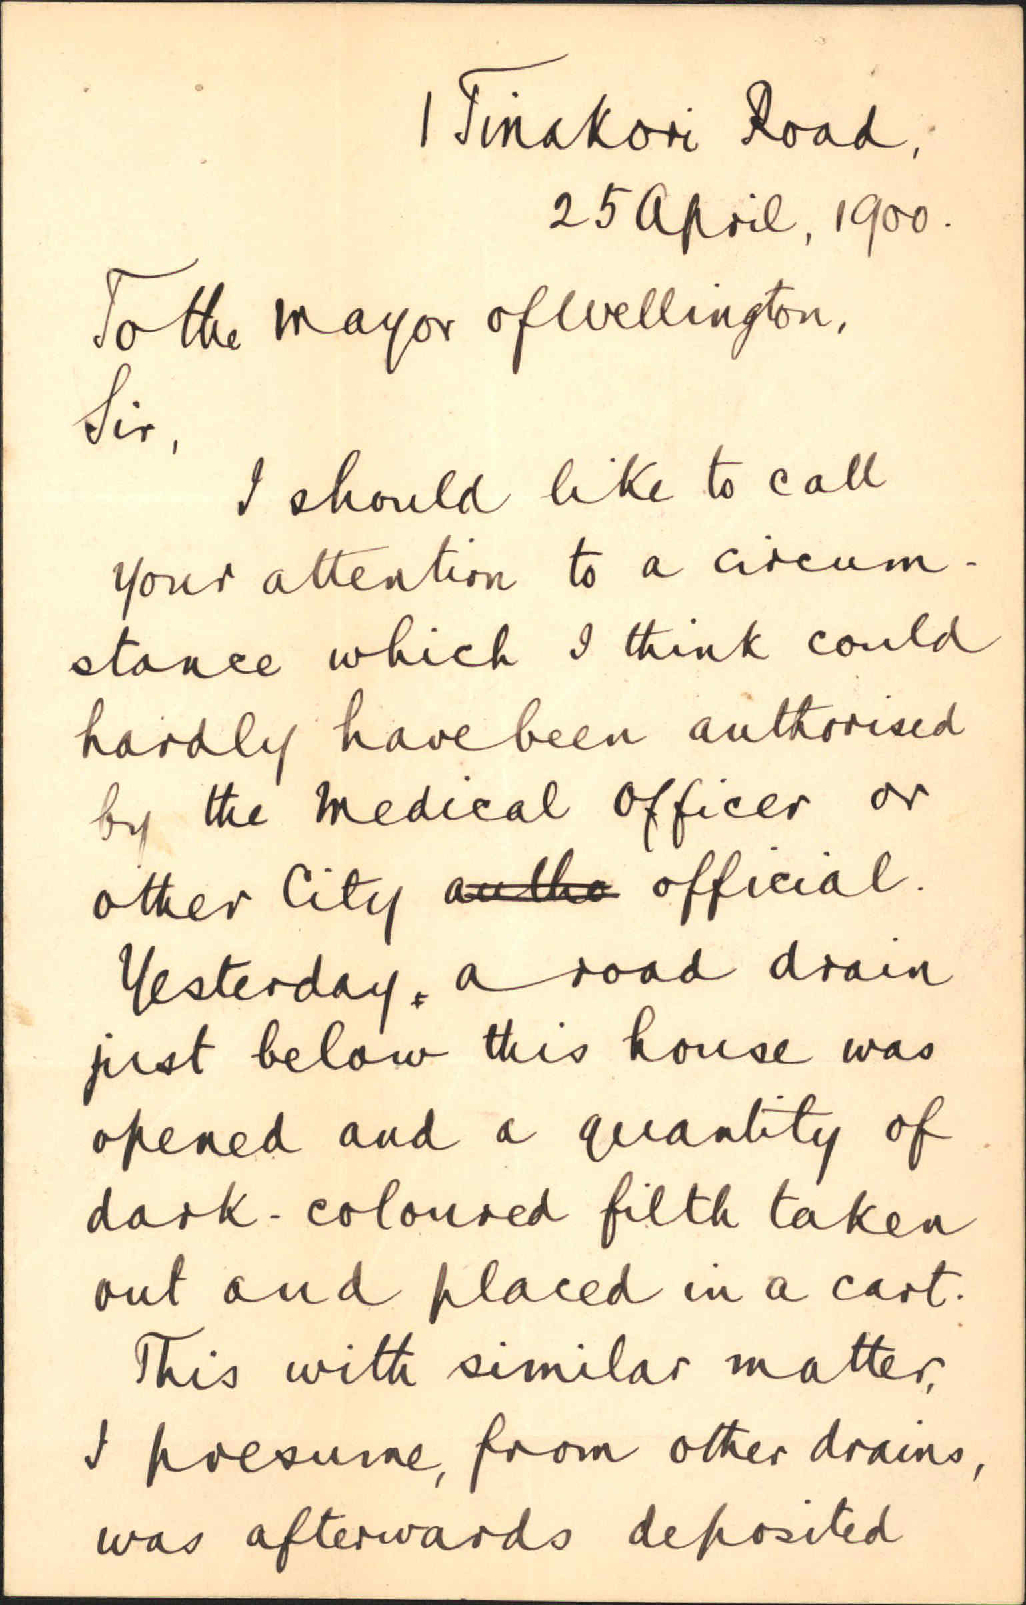 1 Tinakori Road,
25 April, 1900.
To the Mayor of Wellington,
Sir,
I should like to call
your attention to a circum-
stance which I think could
hardly have been authorised
by the Medical Officer or
other City autho official.
Yesterday, a road drain
just below this house was
opened and a quantity of
dark-coloured filth taken
out and placed in a cart.
This with similar matter,
I presume, from other drains,
was afterwards deposited